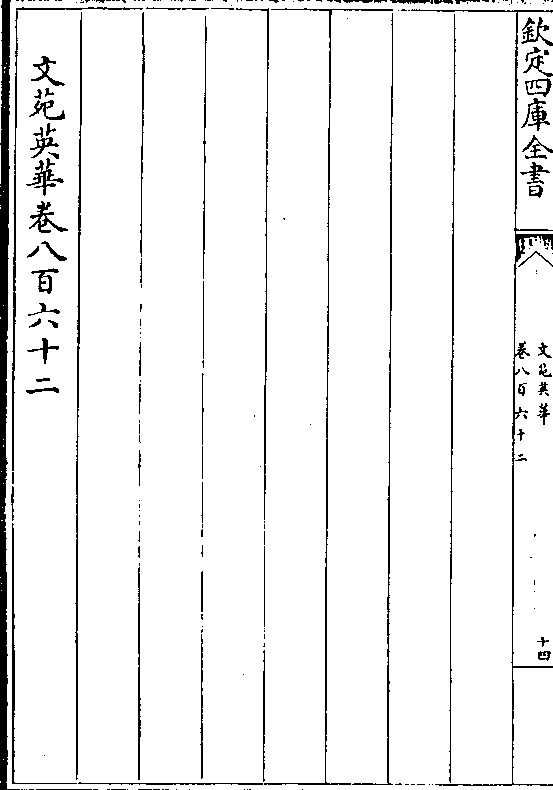 欽定四庫全書
文苑英華
卷八百六十二
十四
文苑英華卷八百六十二